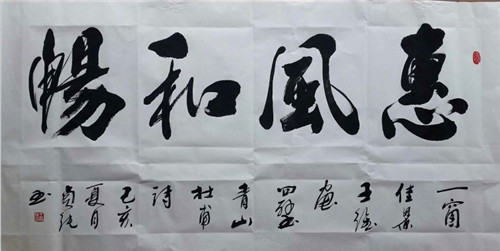 惠風和暢
一窗
佳景
王維
畫
四壁
青山
杜甫
詩
己亥
夏月
书